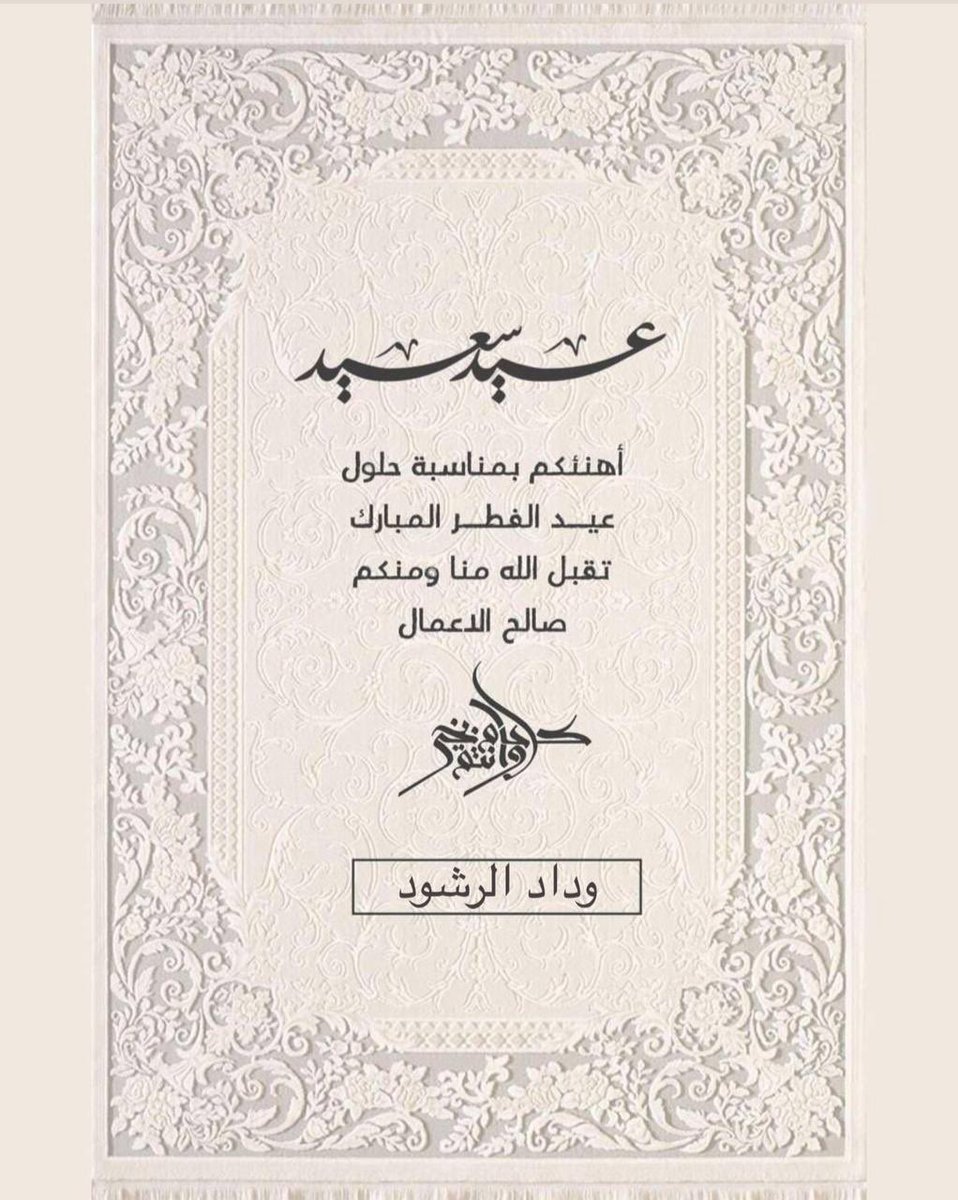 عيد سعيد
أهنئكم بمناسبة حلول
عيــد الفطــر المبارك
تقبل الله منا ومنكم
صالح الاعمال
كل عام وأنتم بخير
وداد الرشود